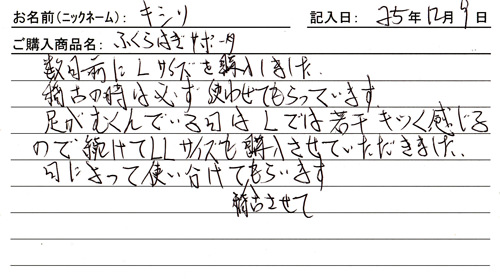 お名前(ニックネーム): キシリ 記入日: 25年12月9日
ご購入商品名: ふくらはぎサポータ
数日前にLサイズを購入しました.
稽古の時は必ず使わせてもらっています
足がむくんでいる日はLでは若干キツく感じる
ので続けてLLサイズも購入させていただきました.
日によって使い分けてもらいます
稽古させて